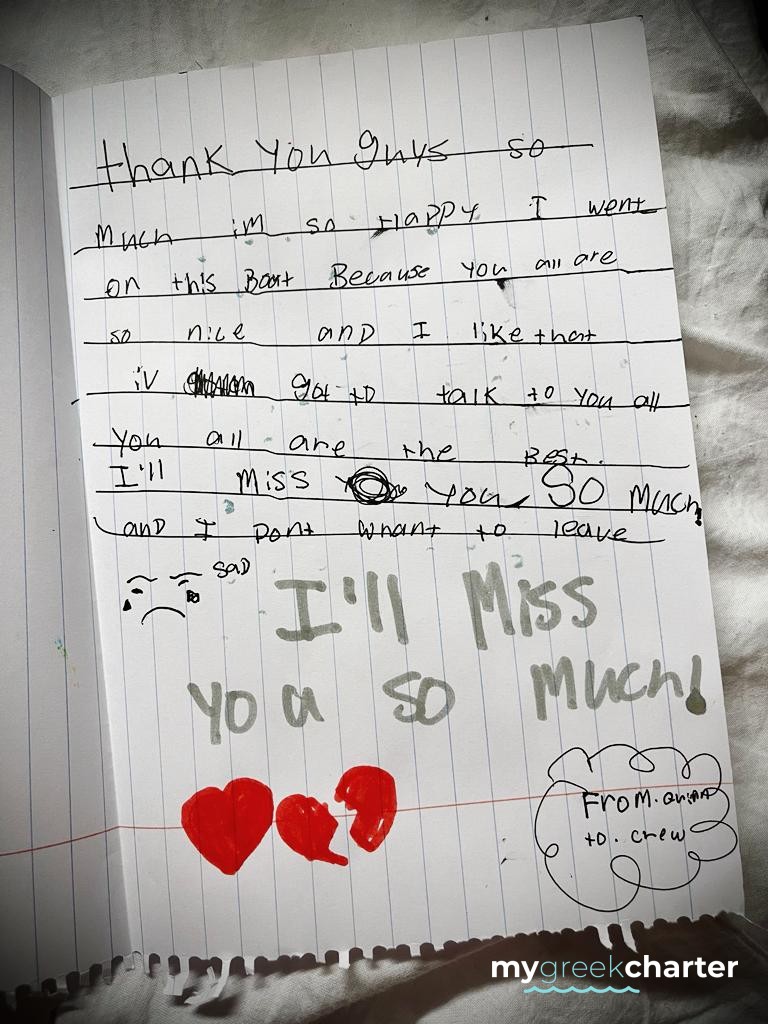 thank you guys so
Much im so HAPPY I went
on this Boat Because you all are
so nice anD I like that
iv got to talk to you all
you all are the Best.
I'll Miss you SO Much!
anD I Dont whant to leave
SAD
I'll Miss
you so Much!
FroM. Quinn
to. crew
mygreekcharter